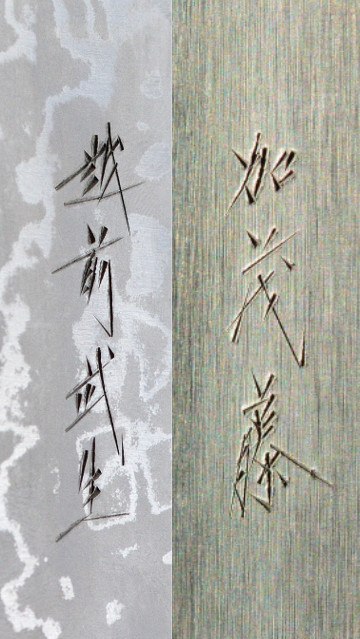 越前武生
加茂藤